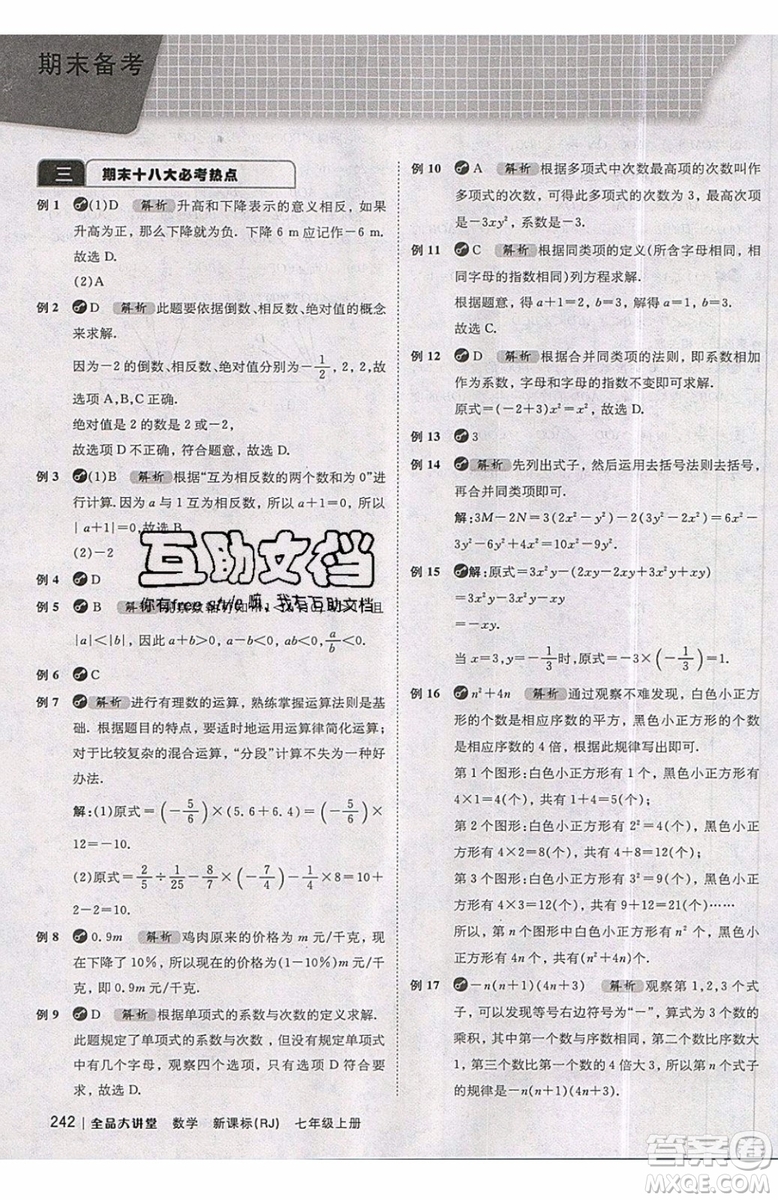 期末备考
三 期末十八大必考热点
例 1 (1)D 解析 升高和下降表示的意义相反，如果
升高为正，那么下降就为负. 下降 6 m 应记作－6 m.
故选 D.
(2)A
例 2 D 解析 此题要依据倒数、相反数、绝对值的概念
来求解.
因为－2 的倒数、相反数、绝对值分别是－1/2，2，2，故
选项 A,B,C 正确.
绝对值是 2 的数是 2 或－2，
故选项 D 不正确，符合题意，故选 D.
例 3 (1)B 解析 根据“互为相反数的两个数和为 0”进
行计算. 因为 a 与 1 互为相反数，所以 a＝－1，所以
|a＋1|＝0.故选 B.
(2)－2
例 4 D
例 5 B 解析
|a|＜|b|，因此 a＋b＞0，a－b＜0，ab＜0，a/b＜0.
例 6 C
例 7 解析 进行有理数的运算，熟练掌握运算法则是
基础. 根据题目的特点，要适时地运用运算律简化运算；
对于比较复杂的混合运算，“分段”计算不失为一种好
办法.
解:(1)原式＝(－5/6)×(5.6＋6.4)＝(－5/6)×12
＝－10.
(2)原式＝2/5÷1/25－8/7×(7/4)＋10－2＝10－2＋10－
2－2＝－10.
例 8 0.9m 解析 鸡肉原来的价格为 m 元/千克，现
在下降了 10%，所以价格为(1－10%)m 元/千克，即
0.9m 元/千克.
例 9 D 解析 根据单项式的系数与次数的定义求解.
此题规定了单项式的系数与次数，因此在确定单项式
中字母的次数、观察四个选项，只有选项 D 符合要求，
故选 D.
例 10 A 解析 根据多项式中次数最高项的次数叫作
多项式的次数，可得此多项式的次数为 3，最高次项是
－3xy²，系数是－3.
例 11 C 解析 根据同类项的定义(所含字母相同，相
同字母的指数相同)列方程求解.
根据题意，得 a＋1＝2，b＝3，解得 a＝1，b＝3.
故选 C.
例 12 D 解析 根据合并同类项的法则，即系数相加作
为系数，字母和字母的指数不变即可求解.
原式＝(－2＋3)×a²＝a²，故选 D.
例 13 3
例 14 解析 先列出式子，然后运用去括号法则去括号，
再合并同类项即可.
解:3M－2N＝3(2x²－y)－2(x²＋2y)＝6x²－3y－
2x²－4y＝4x²－7y.
例 15 解:原式＝3x²－(2x²－xy＋2y)－2(x²－xy＋
xy－y)＝3x²－2x²＋xy－2y－x²＋2xy－2xy＋2y
＝－xy.
当 x＝－1/3，y＝－3 时，原式＝－(－1/3)×(－3)＝－1.
例 16 n²＋4n 解析 通过观察不难发现，白色小正方
形的个数是相应序数的平方，黑色小正方形的个数
是相应序数的 4 倍，根据此规律写出即可.
第 1 个图形:白色小正方形有 1 个，黑色小正方形有
4×1＝4(个)，共有 1＋4＝5(个)；
第 2 个图形:白色小正方形有 2²＝4(个)，黑色小正
方形有 4×2＝8(个)，共有 4＋8＝12(个)；
第 3 个图形:白色小正方形有 3²＝9(个)，黑色小正
方形有 4×3＝12(个)，共有 9＋12＝21(个)……
所以，第 n 个图形中白色小正方形和黑色小正方形
的个数总和是 n²＋4n.
例 17 －n(n＋1)(4n＋3) 解析 观察第 1,2,3 个式
子，可以发现等号右边符号为“－”，算式为 3 个数的
乘积，其中第一个数与序数相同，第二个数比第一
个数大 1，第三个数比第一个数的 4 倍大 3，故第 n 个式子
的规律是－n(n＋1)(4n＋3).
互助文档
你有free style嘛，我有互助文档
242 全品大讲堂 数学 新课标(RJ) 七年级上册
答案圈
MXQE.COM